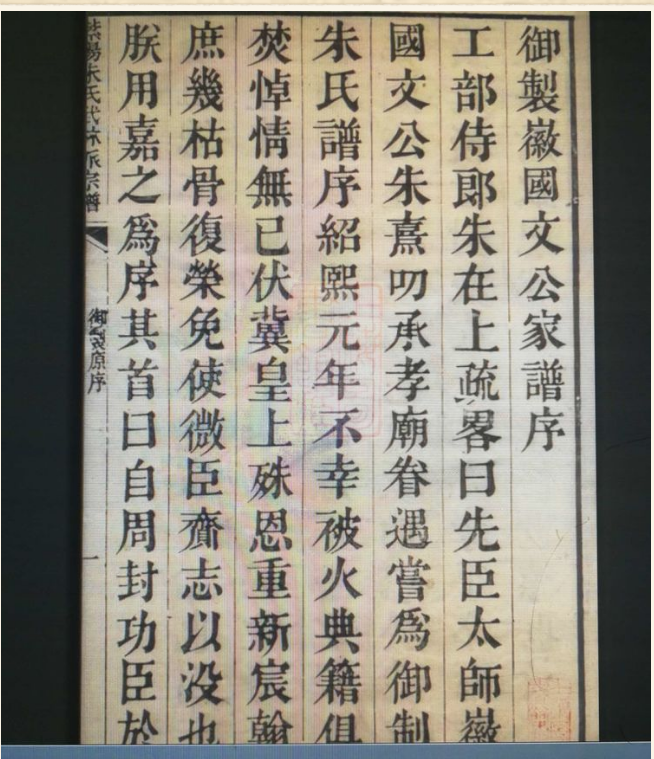 御製徽國文公家譜序
工部侍郎朱在上疏畧曰先臣太師徽
國文公朱熹叨承孝廟眷遇嘗爲御制
朱氏譜序紹熙元年不幸被火典籍俱
焚悼情無已伏冀皇上殊恩重新宸翰
庶幾枯骨復榮免使微臣齎志以没也
朕用嘉之爲序其首曰自周封功臣於
紫陽朱氏武林派宗譜
御製原序
一